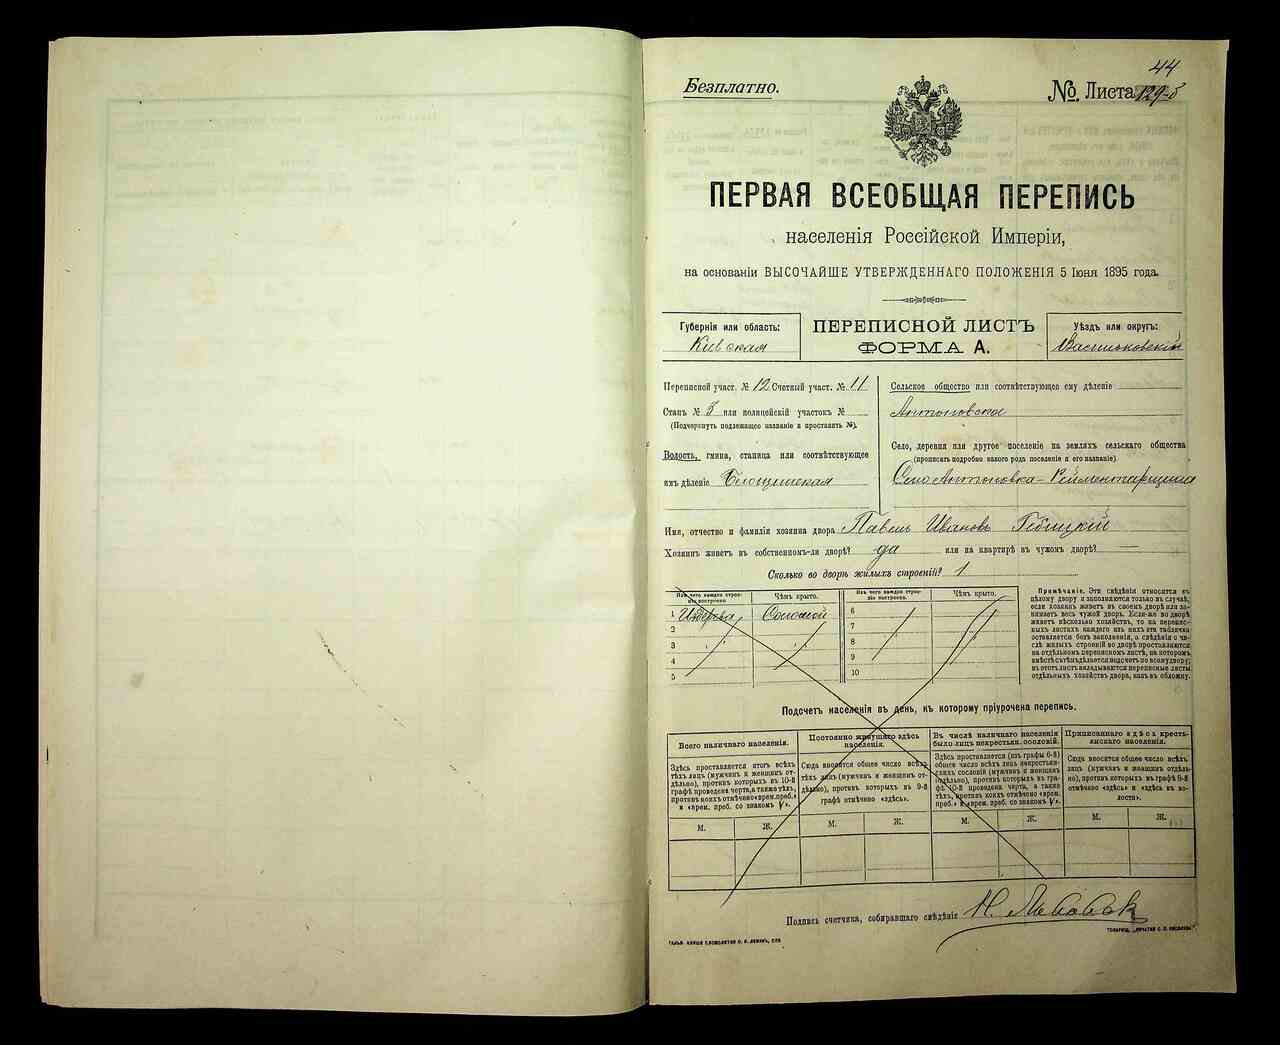 44
Безплатно.
№ Листа 129-б
ПЕРВАЯ ВСЕОБЩАЯ ПЕРЕПИСЬ
населенія Россійской Имперіи,
на основаніи ВЫСОЧАЙШЕ УТВЕРЖДЕННАГО ПОЛОЖЕНІЯ 5 Іюня 1895 года.
Губернія или область:
Кіевская
ПЕРЕПИСНОЙ ЛИСТЪ
ФОРМА А.
Уѣздъ или округъ:
Васильковскій
Переписной участ. № 12 Счетный участ. № 11
Станъ № 3 или полицейскій участокъ №
(Подчеркнуть подлежащее названіе и проставить №).
Волость, гмина, станица или соотвѣтствующее
имъ дѣленіе
Сельское общество или соотвѣтствующее ему дѣленіе
Антоновское
Село, деревня или другое поселеніе на земляхъ сельскаго общества
(прописать подробно какого рода поселеніе и его названіе).
Село Антоновка-Рейментарщина
Имя, отчество и фамилія хозяина двора Павелъ Ивановъ
Хозяинъ живетъ въ собственномъ-ли дворѣ? да или на квартирѣ въ чужомъ дворѣ?
Сколько во дворѣ жилыхъ строеній? 1
Изъ чего каждое строеніе построено.
Чѣмъ крыто.
Изъ чего каждое строеніе построено.
Чѣмъ крыто.
1 Издерева Соломой 6
2 7
3 8
4 9
5 10
Примѣчаніе. Эти свѣдѣнія относятся къ
цѣлому двору и заполняются только въ случаѣ,
если хозяинъ живетъ въ своемъ дворѣ или занимаетъ
весь чужой дворъ. Если-же во дворѣ
живетъ нѣсколько хозяйствъ, то на переписныхъ
листахъ каждаго изъ нихъ эта табличка
оставляется безъ заполненія, а свѣдѣнія о числѣ
жилыхъ строеній во дворѣ проставляются
на отдѣльномъ переписномъ листѣ, на которомъ
вмѣстѣ съ тѣмъ дѣлается подсчетъ по всему двору;
въ этотъ листъ вкладываются переписные листы
отдѣльныхъ хозяйствъ двора, какъ въ обложку.
Подсчетъ населенія въ день, къ которому пріурочена перепись.
Всего наличнаго населенія.
Здѣсь проставляется итогъ всѣхъ
тѣхъ лицъ (мужчинъ и женщинъ отдѣльно),
противъ которыхъ въ 10-й
графѣ проведена черта, а также тѣхъ,
противъ коихъ отмѣчено «врем. преб.»
и «врем. преб. со знакомъ V».
Постоянно живущаго здѣсь
населенія.
Сюда вносится общее число всѣхъ
тѣхъ лицъ (мужчинъ и женщинъ отдѣльно),
противъ которыхъ въ 9-й
графѣ отмѣчено «здѣсь».
Въ числѣ наличнаго населенія
было лицъ некрестьян. сословій.
Здѣсь проставляется (изъ графы 6-й)
общее число всѣхъ лицъ некрестьянскихъ
сословій (мужчинъ и женщинъ
отдѣльно), противъ которыхъ въ графѣ
10-й проведена черта, а также
противъ коихъ отмѣчено «врем.
преб.» и «врем. преб. со знакомъ V».
Приписаннаго здѣсь крестьянскаго
населенія.
Сюда вносится общее число всѣхъ
лицъ (мужчинъ и женщинъ отдѣльно),
противъ которыхъ въ графѣ 8-й
отмѣчено «здѣсь» и «здѣсь въ волости».
М. Ж. М. Ж. М. Ж. М. Ж.
Подпись счетчика, собиравшаго свѣдѣнія